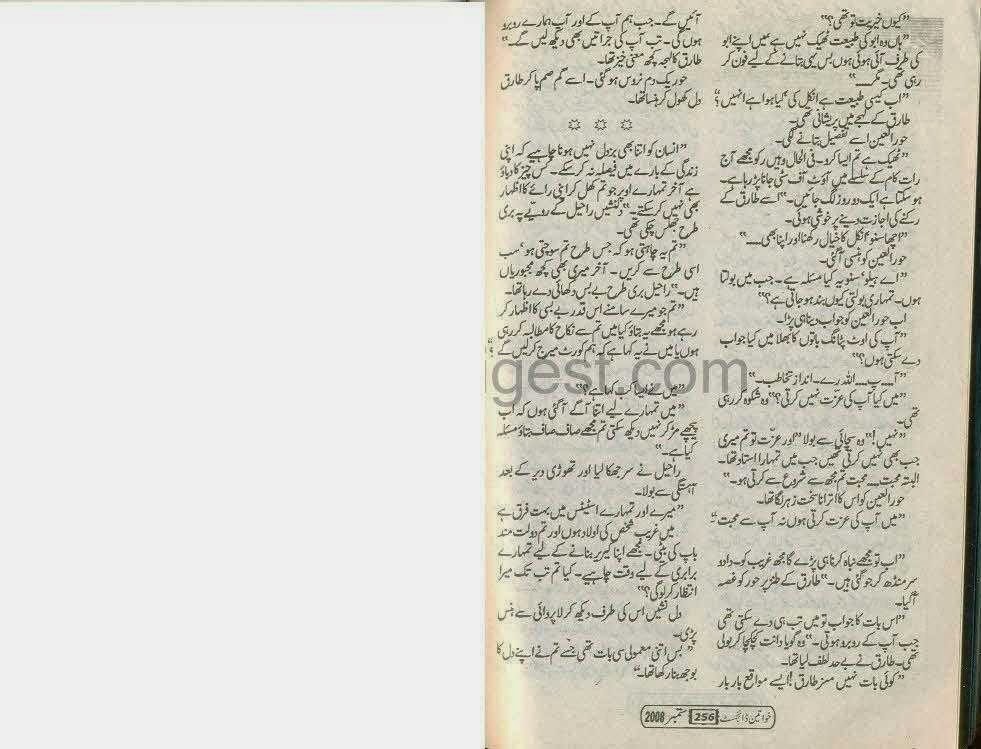 "کیوں خیریت تو تھی؟"
"ہاں وہ ابو کی طبیعت ٹھیک نہیں ہے میں اپنے ابو
کی طرف آئی ہوئی ہوں بس یہی بتانے کے لیے فون کر
رہی تھی۔ مگر......"
"اب کیسی طبیعت ہے انکل کی 'کیا ہوا ہے انہیں؟"
طارق کے لہجے میں پریشانی تھی۔
حور العین اسے تفصیل بتانے لگی۔
"ٹھیک ہے تم ایسا کرو۔ فی الحال وہیں رکو مجھے آج
رات کام کے سلسلے میں آؤٹ آف سٹی جانا پڑ رہا ہے۔
ہو سکتا ہے ایک دو روز لگ جائیں۔" اسے طارق کے
رکنے کی اجازت دینے پر خوشی ہوئی۔
"اچھا سنو! انکل کا خیال رکھنا اور اپنا بھی......"
حور العین کو ہنسی آ گئی۔
"اے ہیلو' سنو یہ کیا مسئلہ ہے۔ جب میں بولتا
ہوں۔ تمہاری بولتی کیوں بند ہو جاتی ہے؟"
اب حور العین کو جواب دینا ہی پڑا۔
"آپ کی اوٹ پٹانگ باتوں کا بھلا میں کیا جواب
دے سکتی ہوں؟"
"آ......پ...... اللہ رے۔ انداز تخاطب۔"
"میں کیا آپ کی عزت نہیں کرتی؟" وہ شکوہ کر رہی
تھی۔
"نہیں!" وہ سچائی سے بولا "اور عزت تو تم میری
جب بھی نہیں کرتی تھیں جب میں تمہارا استاد تھا۔
البتہ محبت...... محبت تم مجھ سے شروع سے کرتی ہو۔"
حور العین کو اس کا اترانا سخت زہر لگا تھا۔
"میں آپ کی عزت کرتی ہوں نہ آپ سے محبت"
"اب تو مجھے نباہ کرنا ہی پڑے گا مجھ غریب کو۔ دادو
سر منڈھ کر جو گئی ہیں۔" طارق کے طنز پر حور کو غصہ
آ گیا۔
"اس بات کا جواب تو میں تب ہی دے سکتی تھی
جب آپ کے روبرو ہوتی۔" وہ گویا دانت کچکچا کر بولی
تھی۔ طارق نے بے حد لطف لیا تھا۔
"کوئی بات نہیں مسز طارق! ایسے مواقع بار بار
آئیں گے۔ جب ہم آپ کے اور آپ ہمارے روبرو
ہوں گی۔ تب آپ کی جراتیں بھی دیکھ لیں گے۔"
طارق کا لہجہ کچھ معنی خیز تھا۔
حور یک دم نروس ہو گئی۔ اسے گم صم پا کر طارق
دل کھول کر ہنسا تھا۔
"انسان کو اتنا بھی بزدل نہیں ہونا چاہیے کہ اپنی
زندگی کے بارے میں فیصلہ نہ کر سکے۔ کس چیز کا دباؤ
ہے آخر تمہارے اوپر جو تم کھل کر اپنی رائے کا اظہار
بھی نہیں کر سکتے۔" دلنشیں راحیل کے رویے پہ بری
طرح جھلس چکی تھی۔
"تم یہ چاہتی ہو کہ جس طرح تم سوچتی ہو' سب
اسی طرح سے کریں۔ آخر میری بھی کچھ مجبوریاں
ہیں۔" راحیل بری طرح بے بس دکھائی دے رہا تھا۔
"تم جو میرے سامنے اس قدر بے بسی کا اظہار کر
رہے ہو مجھے یہ بتاؤ کیا میں تم سے نکاح کا مطالبہ کر رہی
ہوں یا میں نے یہ کہا ہے کہ ہم کورٹ میرج کر لیں گے؟"
gest.com
"میں نے ایسا کب کہا ہے؟"
"میں تمہارے لیے اتنا آگے آ گئی ہوں کہ اب
پیچھے مڑ کر نہیں دیکھ سکتی تم مجھے صاف صاف بتاؤ مسئلہ
کیا ہے۔"
راحیل نے سر جھکا لیا اور تھوڑی دیر کے بعد
آہستگی سے بولا۔
"میرے اور تمہارے اسٹیٹس میں بہت فرق ہے
میں غریب شخص کی اولاد ہوں اور تم دولت مند
باپ کی بیٹی۔ مجھے اپنا کیریر بنانے کے لیے تمہارے
برابری کے لیے وقت چاہیے۔ کیا تم تب تک میرا
انتظار کر لو گی؟"
دل نشیں اس کی طرف دیکھ کر لاپروائی سے ہنس
پڑی۔
"بس اتنی معمولی سی بات تھی جسے تم نے اپنے دل کا
بوجھ بنا رکھا تھا۔"
خواتین ڈائجسٹ 256 ستمبر 2008